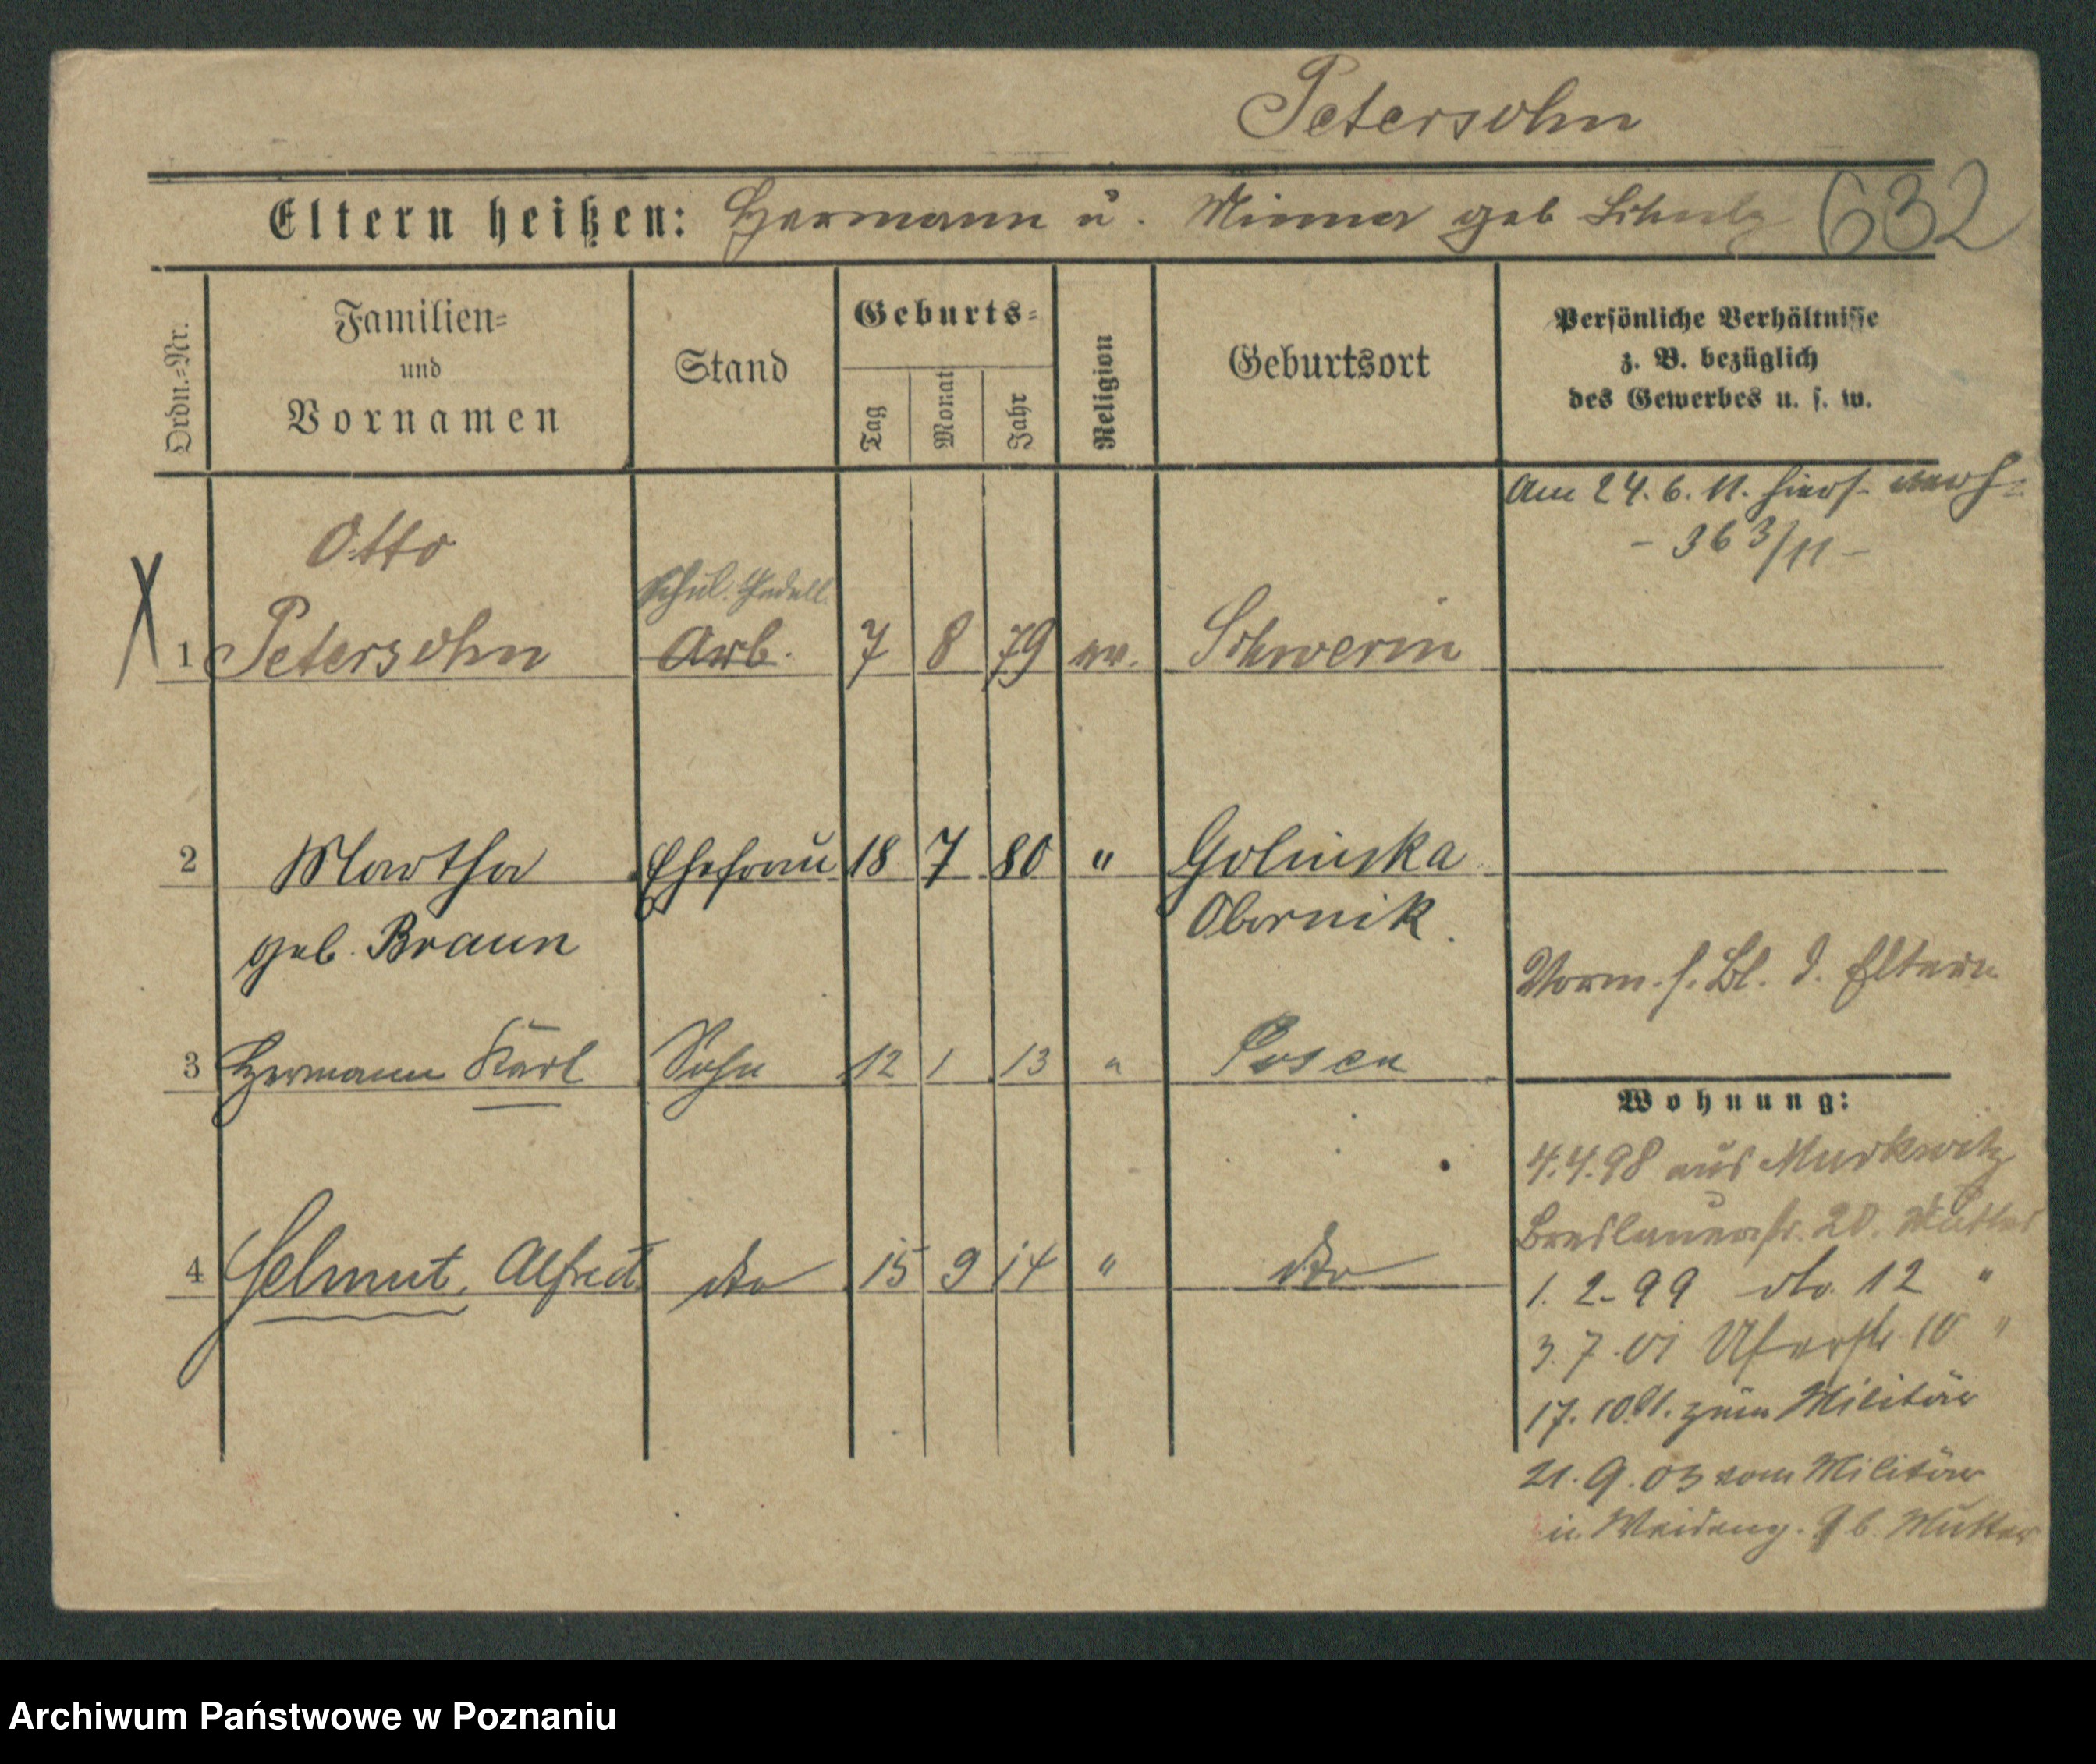 Petersohn
Eltern heißen: Hermann u. Minna geb Schulz 632
Ordn.-Nr.
Familien-
und
Vornamen
Stand
Geburts-
Tag
Monat
Jahr
Religion
Geburtsort
Persönliche Verhältnisse
z. B. bezüglich
des Gewerbes u. s. w.
Am 24. 6. 11. hiers. verh-
- 363/11 -
Otto
Schul. Pedell.
1 Petersohn Arb. 7 8 79 ev. Schwerin
2 Martha Ehefrau 18 7 80 " Golinska
geb. Braun Obornik.
Vorm. s. Bl. d. Eltern
3 Hermann Karl Sohn 12 1 13 " Posen
4 Helmut, Alfred dto 15 9 14 " dto
Wohnung:
4.4.98 aus
Breslauerstr. 20. Mutter
1. 2. 99 dto. 12 "
3. 7. 01 Uferstr 10 "
17. 10. 01. zum Militär
21. 9. 03 vom Militär
n. Weideng. 9 b. Mutter
Archiwum Państwowe w Poznaniu